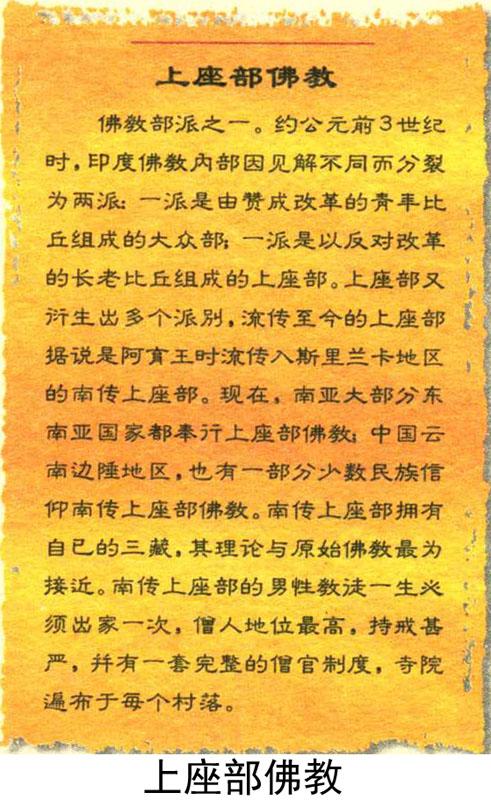 上座部佛教
佛教部派之一。约公元前3世纪
时，印度佛教内部因见解不同而分裂
为两派：一派是由赞成改革的青年比
丘组成的大众部；一派是以反对改革
的长老比丘组成的上座部。上座部又
衍生出多个派别，流传至今的上座部
据说是阿育王时流传入斯里兰卡地区
的南传上座部。现在，南亚大部分东
南亚国家都奉行上座部佛教；中国云
南边陲地区，也有一部分少数民族信
仰南传上座部佛教。南传上座部拥有
自已的三藏，其理论与原始佛教最为
接近。南传上座部的男性教徒一生必
须出家一次，僧人地位最高，持戒甚
严，并有一套完整的僧官制度，寺院
遍布于每个村落。
上座部佛教